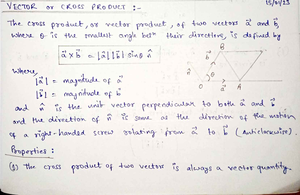 VECTOR or CROSS PRODUCT :-
15/01/23
The cross product, or vector product, of two vectors a⃗ and b⃗,
where θ is the smallest angle betⁿ their direction, is defined by
a⃗ × b⃗ = |a⃗||b⃗| sinθ n̂
where,
|a⃗| = magnitude of a⃗
|b⃗| = magnitude of b⃗
and n̂ is the unit vector perpendicular to both a⃗ and b⃗
and the direction of n̂ is same as the direction of the motion
of a right-handed screw rotating from a⃗ to b⃗ (Anticlockwise).
Properties :-
(1) The cross product of two vectors is always a vector quantity.